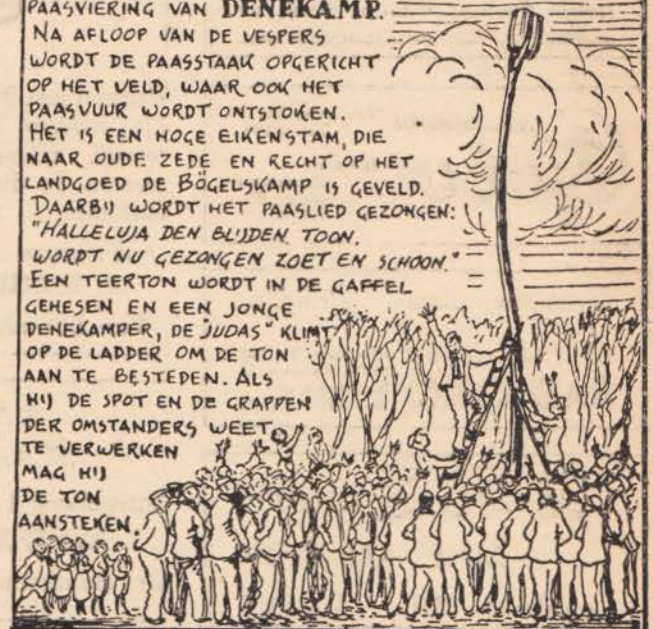 PAASVIERING VAN DENEKAMP.
NA AFLOOP VAN DE VESPERS
WORDT DE PAASSTAAK OPGERICHT
OP HET VELD, WAAR OOK HET
PAASVUUR WORDT ONTSTOKEN.
HET IS EEN HOGE EIKENSTAM, DIE
NAAR OUDE ZEDE EN RECHT OP HET
LANDGOED DE BÖGELSKAMP IS GEVELD.
DAARBIJ WORDT HET PAASLIED GEZONGEN:
"HALLELUJA DEN BLIJDEN TOON.
WORDT NU GEZONGEN ZOET EN SCHOON."
EEN TEERTON WORDT IN DE GAFFEL
GEHESEN EN EEN JONGE
DENEKAMPER, DE "JUDAS" KLIMT
OP DE LADDER OM DE TON
AAN TE BESTEDEN. ALS
HIJ DE SPOT EN DE GRAPPEN
DER OMSTANDERS WEET
TE VERWERKEN
MAG HIJ
DE TON
AANSTEKEN.